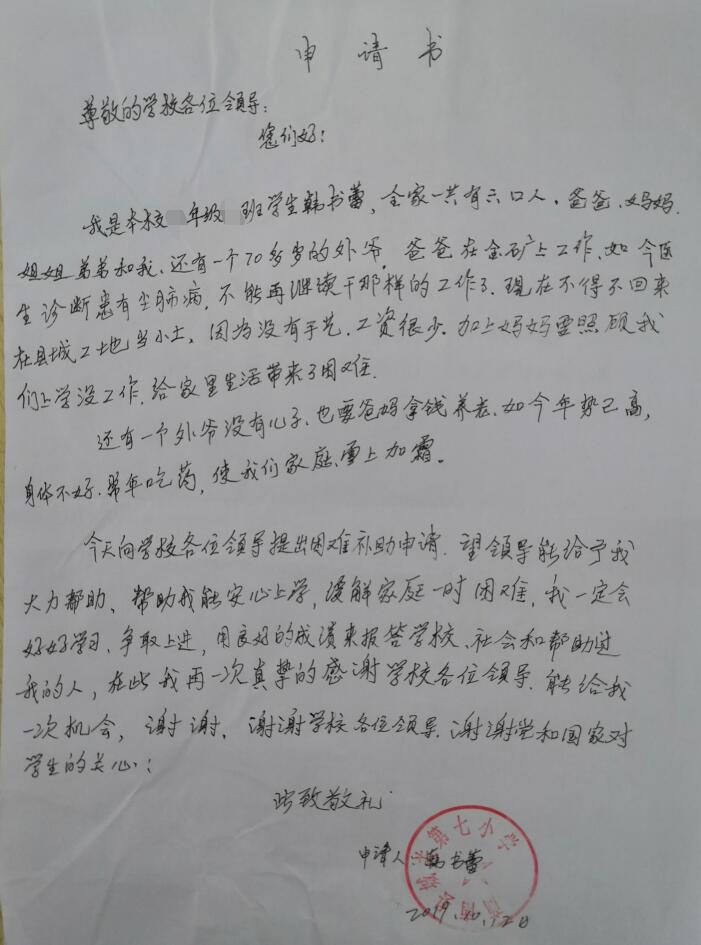 申请书
尊敬的学校各位领导:
您们好!
我是本校 年级 班学生韩书蕾,全家一共有六口人,爸爸、妈妈、
姐姐弟弟和我、还有一个70多岁的外爷。爸爸在金矿上工作、如今医
生诊断患有尘肺病,不能再继续干那样的工作了.现在不得不回来
在县城工地当小工,因为没有手艺.工资很少.加上妈妈要照顾我
们上学没工作.给家里生活带来了困难.
还有一个外爷没有儿子.也要爸妈拿钱养老.如今年势已高,
身体不好.常年吃药,使我们家庭雪上加霜。
今天向学校各位领导提出困难补助申请.望领导能给予我
大力帮助、帮助我能安心上学,缓解家庭一时困难,我一定会
好好学习、争取上进,用良好的成绩来报答学校、社会和帮助过
我的人,在此我再一次真挚的感谢学校各位领导.能给我
一次机会,谢谢、谢谢学校各位领导.谢谢党和国家对
学生的关心!
此致敬礼
第七小学
申请人:韩书蕾
2019.10.12日